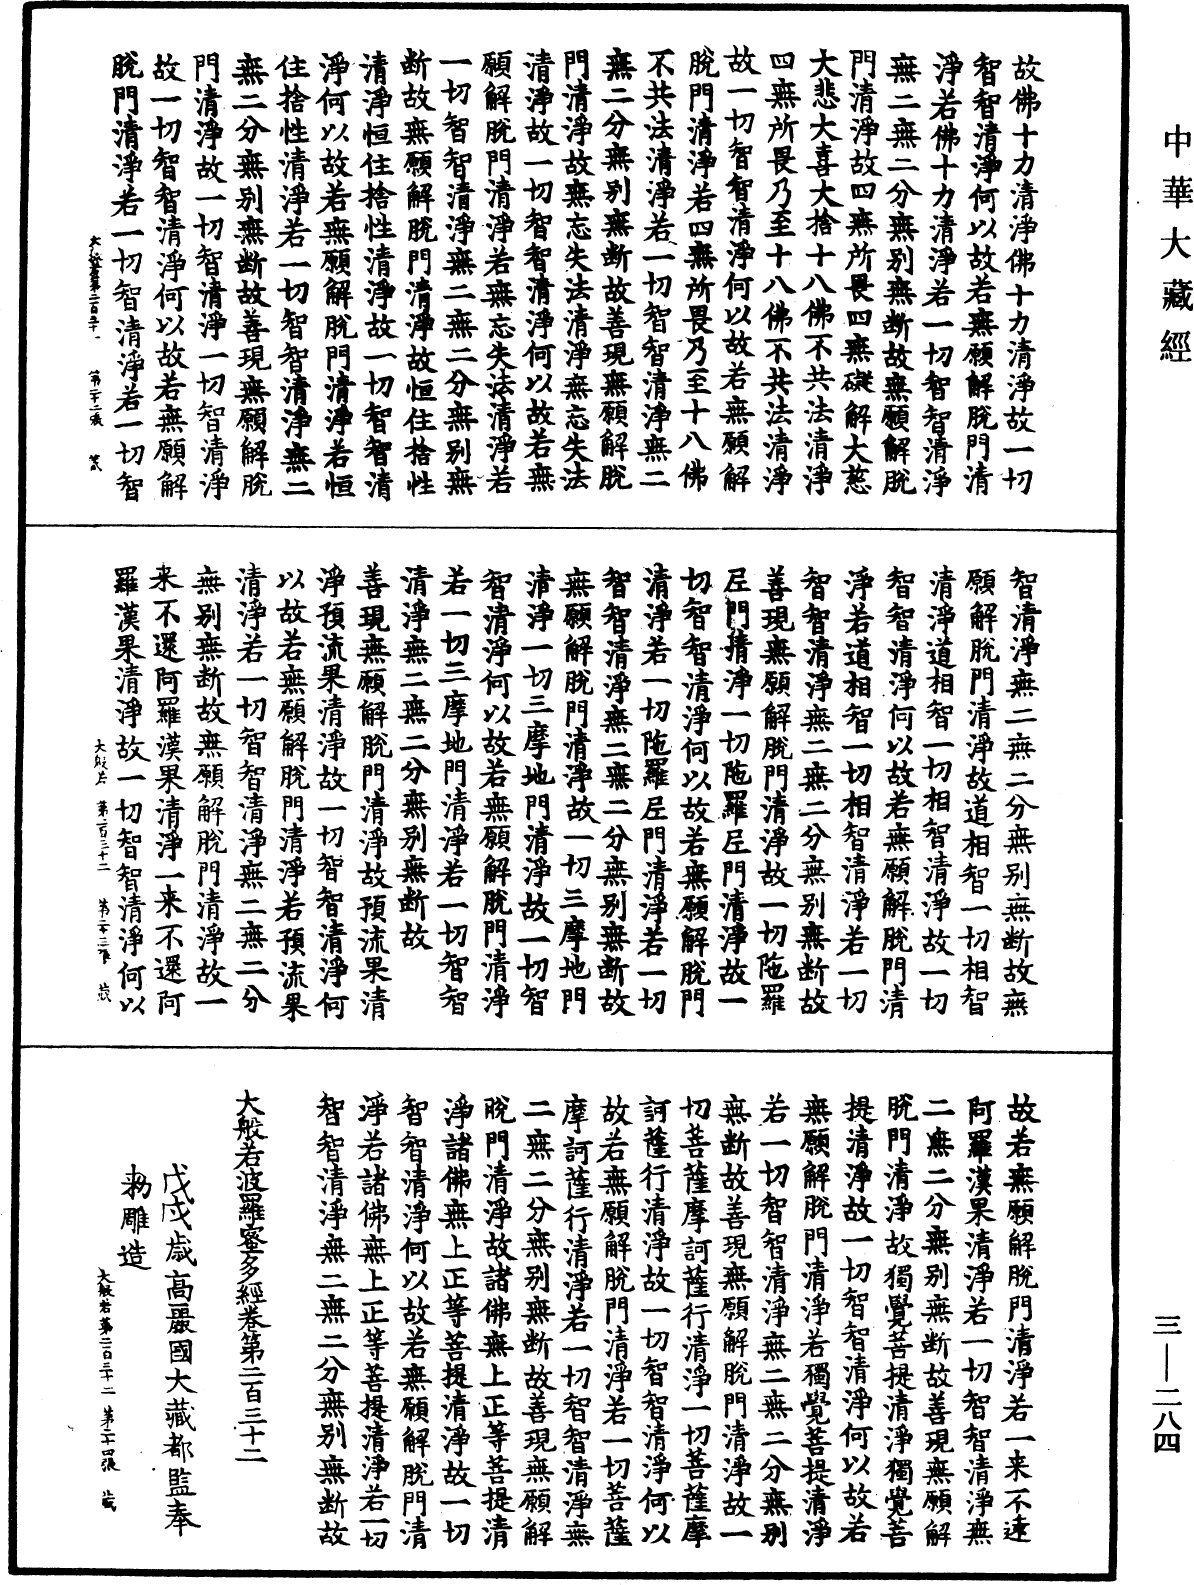 中華大藏經
故佛十力清淨佛十力清淨故一切
智智清淨何以故若無願解脫門清
淨若佛十力清淨若一切智智清淨
無二無二分無別無斷故無願解脫
門清淨故四無所畏四無礙解大慈
大悲大喜大捨十八佛不共法清淨
四無所畏乃至十八佛不共法清淨
故一切智智清淨何以故若無願解
脫門清淨若四無所畏乃至十八佛
不共法清淨若一切智智清淨無二
無二分無別無斷故善現無願解脫
門清淨故無忘失法清淨無忘失法
清淨故一切智智清淨何以故若無
願解脫門清淨若無忘失法清淨若
一切智智清淨無二無二分無別無
斷故無願解脫門清淨故恒住捨性
清淨恒住捨性清淨故一切智智清
淨何以故若無願解脫門清淨若恒
住捨性清淨若一切智智清淨無二
無二分無別無斷故善現無願解脫
門清淨故一切智清淨一切智清淨
故一切智智清淨何以故若無願解
脫門清淨若一切智清淨若一切智
智清淨無二無二分無別無斷故無
願解脫門清淨故道相智一切相智
清淨道相智一切相智清淨故一切
智智清淨何以故若無願解脫門清
淨若道相智一切相智清淨若一切
智智清淨無二無二分無別無斷故
善現無願解脫門清淨故一切陁羅
尼門清淨一切陁羅尼門清淨故一
切智智清淨何以故若無願解脫門
清淨若一切陁羅尼門清淨若一切
智智清淨無二無二分無別無斷故
無願解脫門清淨故一切三摩地門
清淨一切三摩地門清淨故一切智
智清淨何以故若無願解脫門清淨
若一切三摩地門清淨若一切智智
清淨無二無二分無別無斷故
善現無願解脫門清淨故預流果清
淨預流果清淨故一切智智清淨何
以故若無願解脫門清淨若預流果
清淨若一切智智清淨無二無二分
無別無斷故無願解脫門清淨故一
来不還阿羅漢果清淨一来不還阿
羅漢果清淨故一切智智清淨何以
大般若 第二百三十二 第二十三張 藏
故若無願解脫門清淨若一来不還
阿羅漢果清淨若一切智智清淨無
二無二分無別無斷故善現無願解
脫門清淨故獨覺菩提清淨獨覺菩
提清淨故一切智智清淨何以故若
無願解脫門清淨若獨覺菩提清淨
若一切智智清淨無二無二分無別
無斷故善現無願解脫門清淨故一
切菩薩摩訶薩行清淨一切菩薩摩
訶薩行清淨故一切智智清淨何以
故若無願解脫門清淨若一切菩薩
摩訶薩行清淨若一切智智清淨無
二無二分無別無斷故善現無願解
脫門清淨故諸佛無上正等菩提清
淨諸佛無上正等菩提清淨故一切
智智清淨何以故若無願解脫門清
淨若諸佛無上正等菩提清淨若一切
智智清淨無二無二分無別無斷故
大般若波羅蜜多經卷第二百三十二
戊戌歲高麗國大藏都監奉
勑雕造
大般若第二百三十二 第二十四張 藏
三—二八四